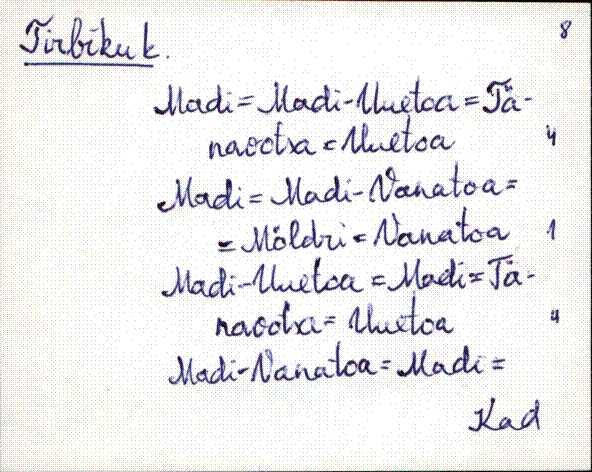 Tirbiku k. 8
Madi = Madi-Uuetoa = Tä-
naootsa = Uuetoa 4
Madi = Madi-Vanatoa =
= Möldri = Vanatoa 1
Madi-Uuetoa = Madi = Tä-
naootsa = Uuetoa 4
Madi-Vanatoa = Madi =
Kad